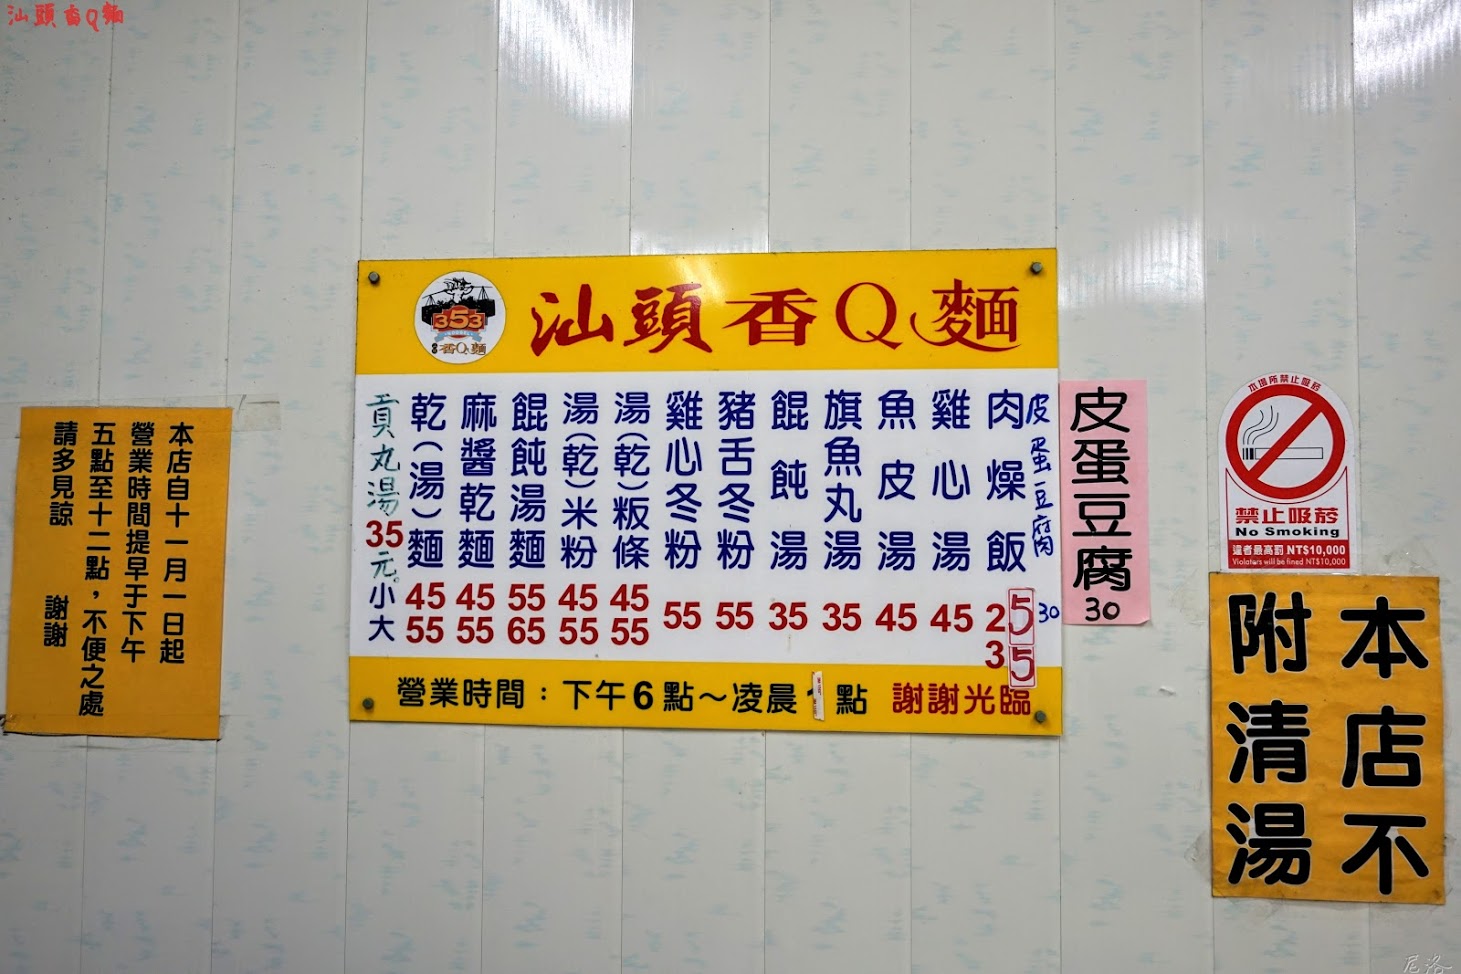 汕頭香Q麵
353
香Q麵
汕頭香Q麵
皮蛋豆腐
30
肉燥飯
25
35
雞心湯
45
魚皮湯
45
旗魚丸湯
35
餛飩湯
35
豬舌冬粉
55
雞心冬粉
55
湯(乾)粄條
45
55
湯(乾)米粉
45
55
餛飩湯麵
55
65
麻醬乾麵
45
55
乾(湯)麵
45
55
小
大
貢丸湯35元。
營業時間：下午6點～凌晨1點 謝謝光臨
皮蛋豆腐
30
本店自十一月一日起
營業時間提早于下午
五點至十二點，不便之處
請多見諒 謝謝
本場所禁止吸菸
禁止吸菸
No Smoking
違者最高罰 NT$10,000
Violators will be fined NT$10,000
本店不
附清湯
尼洛